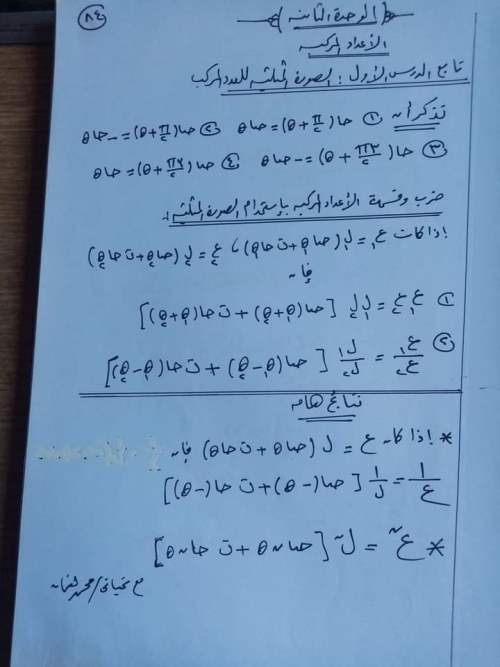 ٨٤
الوحدة الثانية
الأعداد المركبه
تابع الدرس الأول : الصورة المثلثيه للعدد المركب
تذكر أن ① حا(π/٢ + θ) = حتا θ ② حتا(π/٢ + θ) = - حا θ
③ حا(٣π/٢ + θ) = - حتا θ ④ حتا(٣π/٢ + θ) = حا θ
ضرب وقسمة الأعداد المركبه بإستخدام الصورة المثلثيه :
إذا كانت ع₁ = ل₁ (حتا θ₁ + ت حا θ₁) ، ع₂ = ل₂ (حتا θ₂ + ت حا θ₂)
فإن
① ع₁ ع₂ = ل₁ ل₂ [حتا(θ₁ + θ₂) + ت حا(θ₁ + θ₂)]
② ع₁/ع₂ = ل₁/ل₂ [حتا(θ₁ - θ₂) + ت حا(θ₁ - θ₂)]
نتائج هامه
* إذا كان ع = ل (حتا θ + ت حا θ) فإن
١/ع = ١/ل [حتا(-θ) + ت حا(-θ)]
* عⁿ = لⁿ [حتا ن θ + ت حا ن θ]
مع تحياتى / محمد